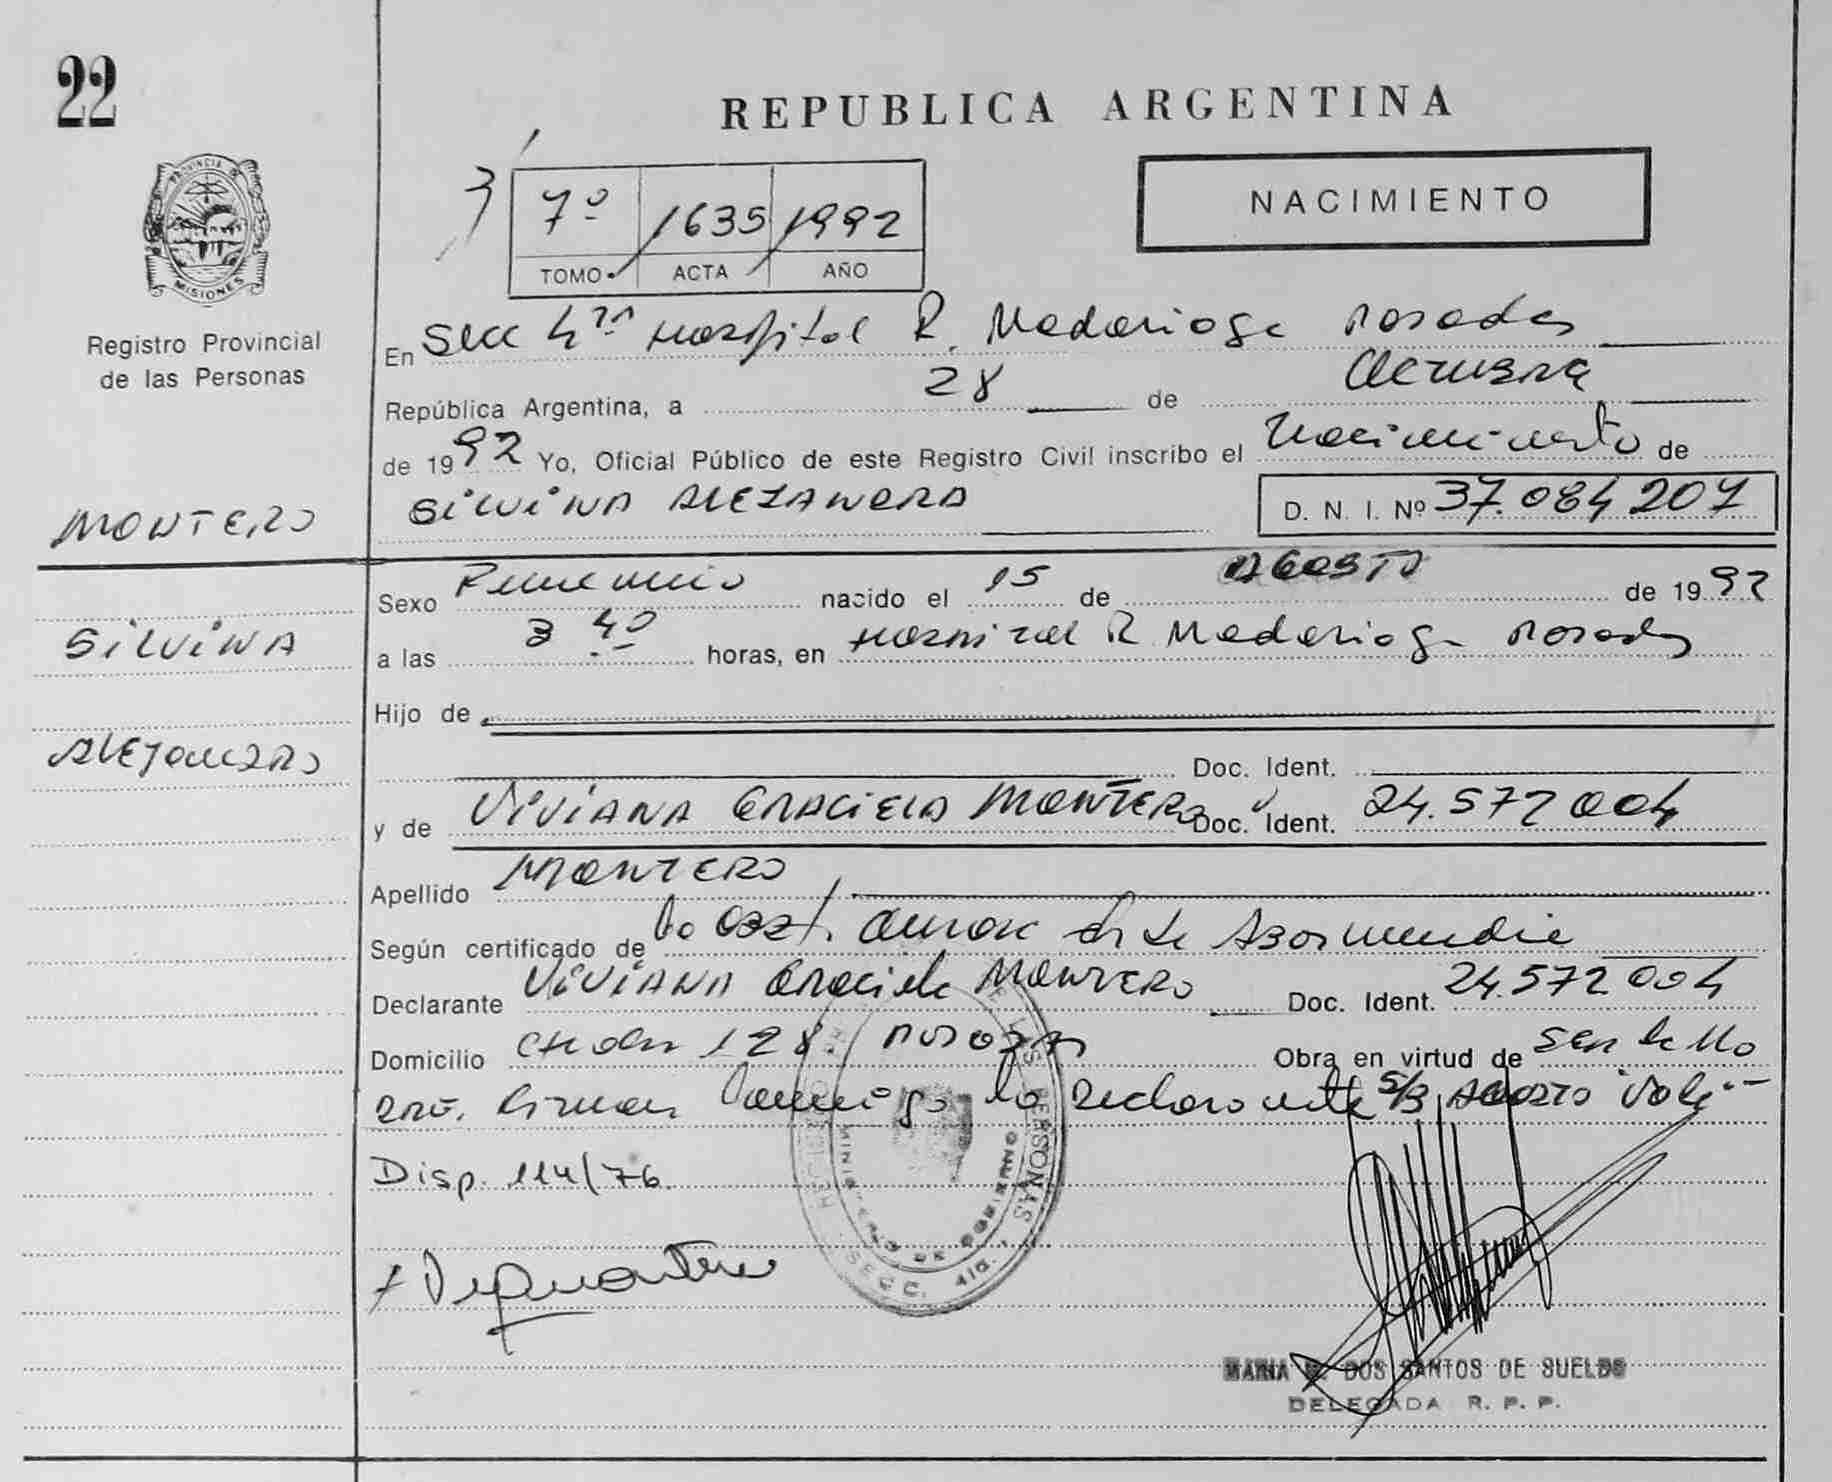 22
REPUBLICA ARGENTINA
PROVINCIA DE
MISIONES
Registro Provincial
de las Personas
7º 1635 1992
TOMO ACTA AÑO
NACIMIENTO
En Secc 4ta Hospital R. Madariaga Posadas
República Argentina, a 28 de Octubre
de 1992 Yo, Oficial Público de este Registro Civil inscribo el Nacimiento de
MONTERO
SILVINA ALEJANDRA
D. N. I. Nº 37.084 207
Sexo Femenino nacido el 15 de AGOSTO de 1992
SILVINA
a las 3 40 horas, en Hospital R Madariaga Posadas
Hijo de
ALEJANDRA
Doc. Ident.
y de VIVIANA GRACIELA MONTERO Doc. Ident. 24.572 004
Apellido MONTERO
Según certificado de la Obst.
Declarante VIVIANA Graciela MONTERO Doc. Ident. 24.572.004
Domicilio 128 Posadas Obra en virtud de ser la
Firman la declarante Vale
Disp. 114/76
MINISTERIO DE GOBIERNO
DE LAS PERSONAS
SECC. 4ta.
MARIA DOS SANTOS DE SUELDO
DELEGADA R. P. P.